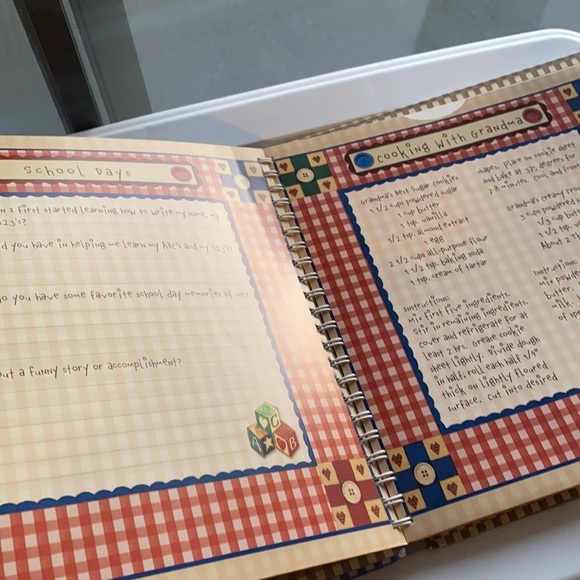 School Days
I first started learning how to write my name, my
123's?
did you have in helping me learn my ABC's and my 123's?
do you have some favorite school day memories of me?
about a funny story or accomplishment?
A
B
C
Cooking With Grandma
Grandma's Best Sugar Cookies
1 1/2 cups powdered sugar
1 cup butter
1 tsp. vanilla
1/2 tsp. almond extract
1 egg
2 1/2 cups all-purpose flour
1 1/2 tsp. baking soda
1 tsp. cream of tartar
Instructions:
Mix first five ingredients.
Stir in remaining ingredients.
Cover and refrigerate for at
least 2 hrs. Grease cookie
sheet lightly. Divide dough
in half; roll each half 1/4"
thick on lightly floured
surface. Cut into desired
shapes. Place on cookie sheet
and bake at 375 degrees for
7-8 minutes. Cool and frost
3 cups powdered
1/3 cup butter
1 1/2 tsp.
About 2
Instructions:
Mix powdered
butter.
milk.
of